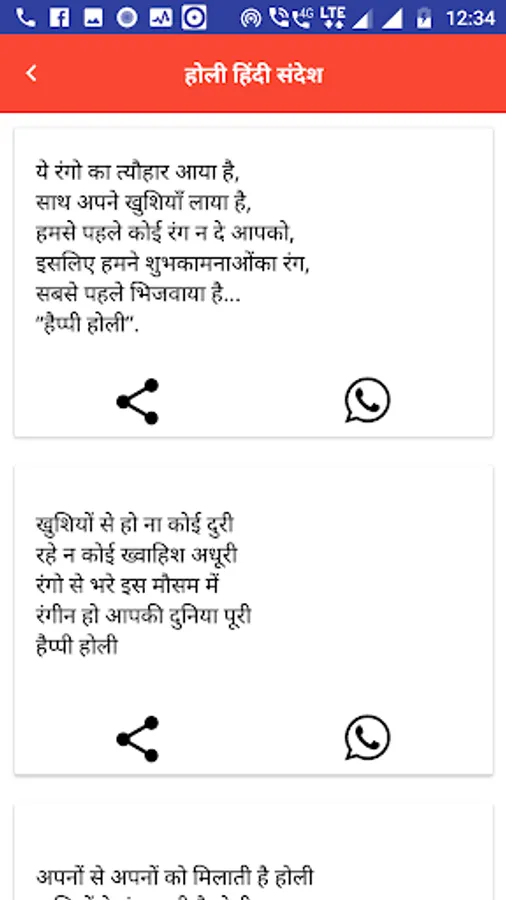 4G LTE 12:34
होली हिंदी संदेश
ये रंगो का त्यौहार आया है,
साथ अपने खुशियाँ लाया है,
हमसे पहले कोई रंग न दे आपको,
इसलिए हमने शुभकामनाओंका रंग,
सबसे पहले भिजवाया है...
"हैप्पी होली".
खुशियों से हो ना कोई दुरी
रहे न कोई ख्वाहिश अधूरी
रंगो से भरे इस मौसम में
रंगीन हो आपकी दुनिया पूरी
हैप्पी होली
अपनों से अपनों को मिलाती है होली